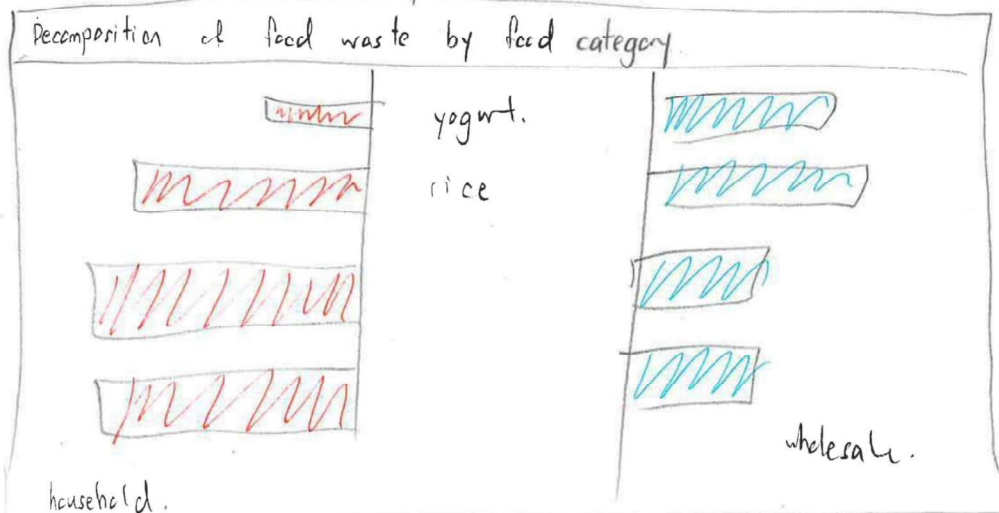 Decomposition of food waste by food category
yogurt.
rice
wholesale.
household.